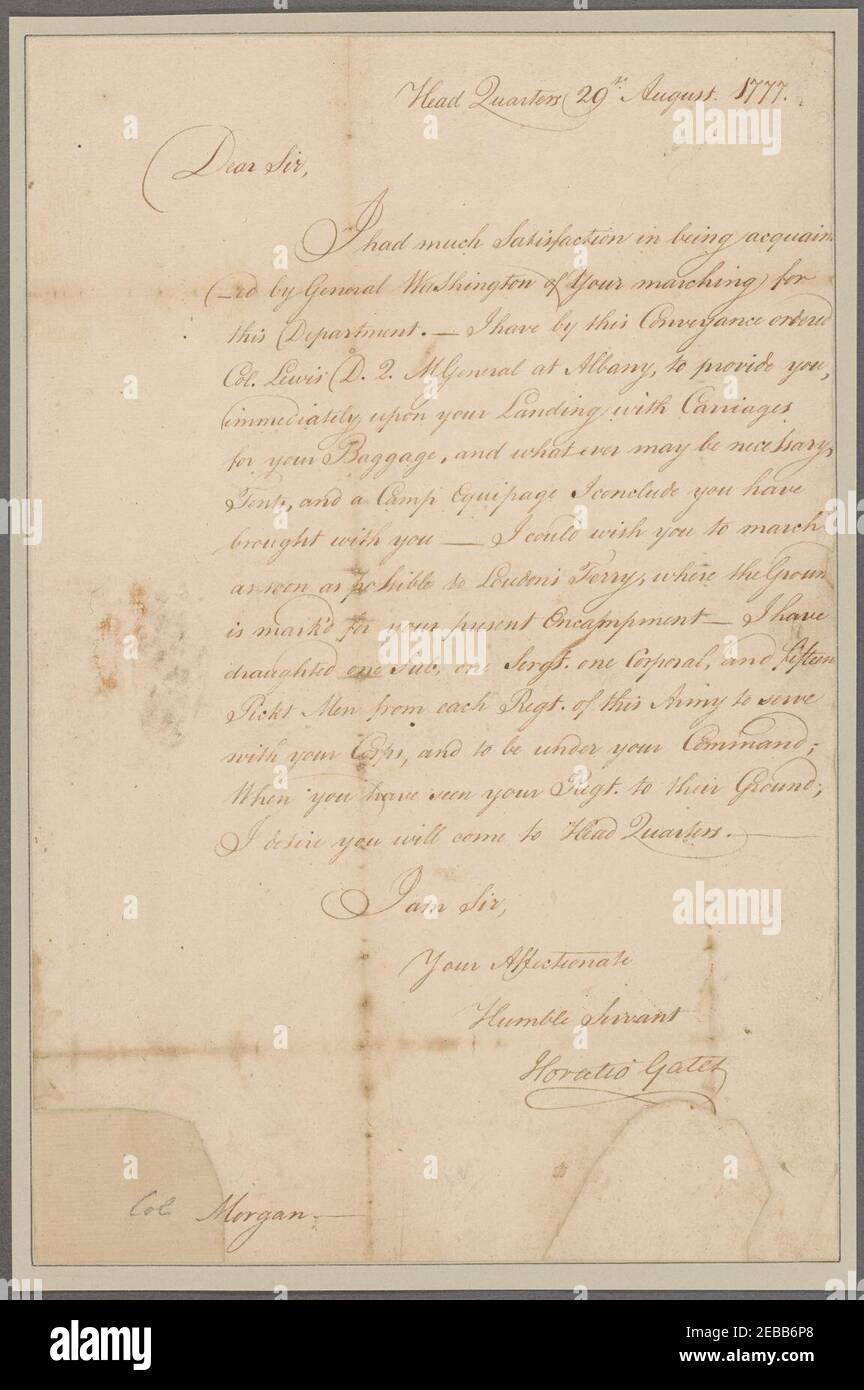 Head Quarters 29th August. 1777.
Dear Sir,
I had much Satisfaction in being acquain
-ed by General Washington of Your marching for
this Department. — I have by this Conveyance ordered
Col. Lewis D. Q. M General at Albany, to provide you,
immediately upon your Landing with Carriages
for your Baggage, and what ever may be necessary,
Tents, and a Camp Equipage I conclude you have
brought with you — I could wish you to march
as soon as possible to Loudon's Ferry, where the Groun
is mark'd for your present Encampment — I have
draughted one Sub, one Sergt. one Corporal, and fifteen
Pickt Men from each Regt. of this Army to serve
with your Corps, and to be under your Command;
When you have seen your Regt. to their Ground,
I desire you will come to Head Quarters. —
I am Sir,
Your Affectionate
Humble Servant
Horatio Gates
Col Morgan. —
alamy
Image ID: 2EBB6P8
www.alamy.com